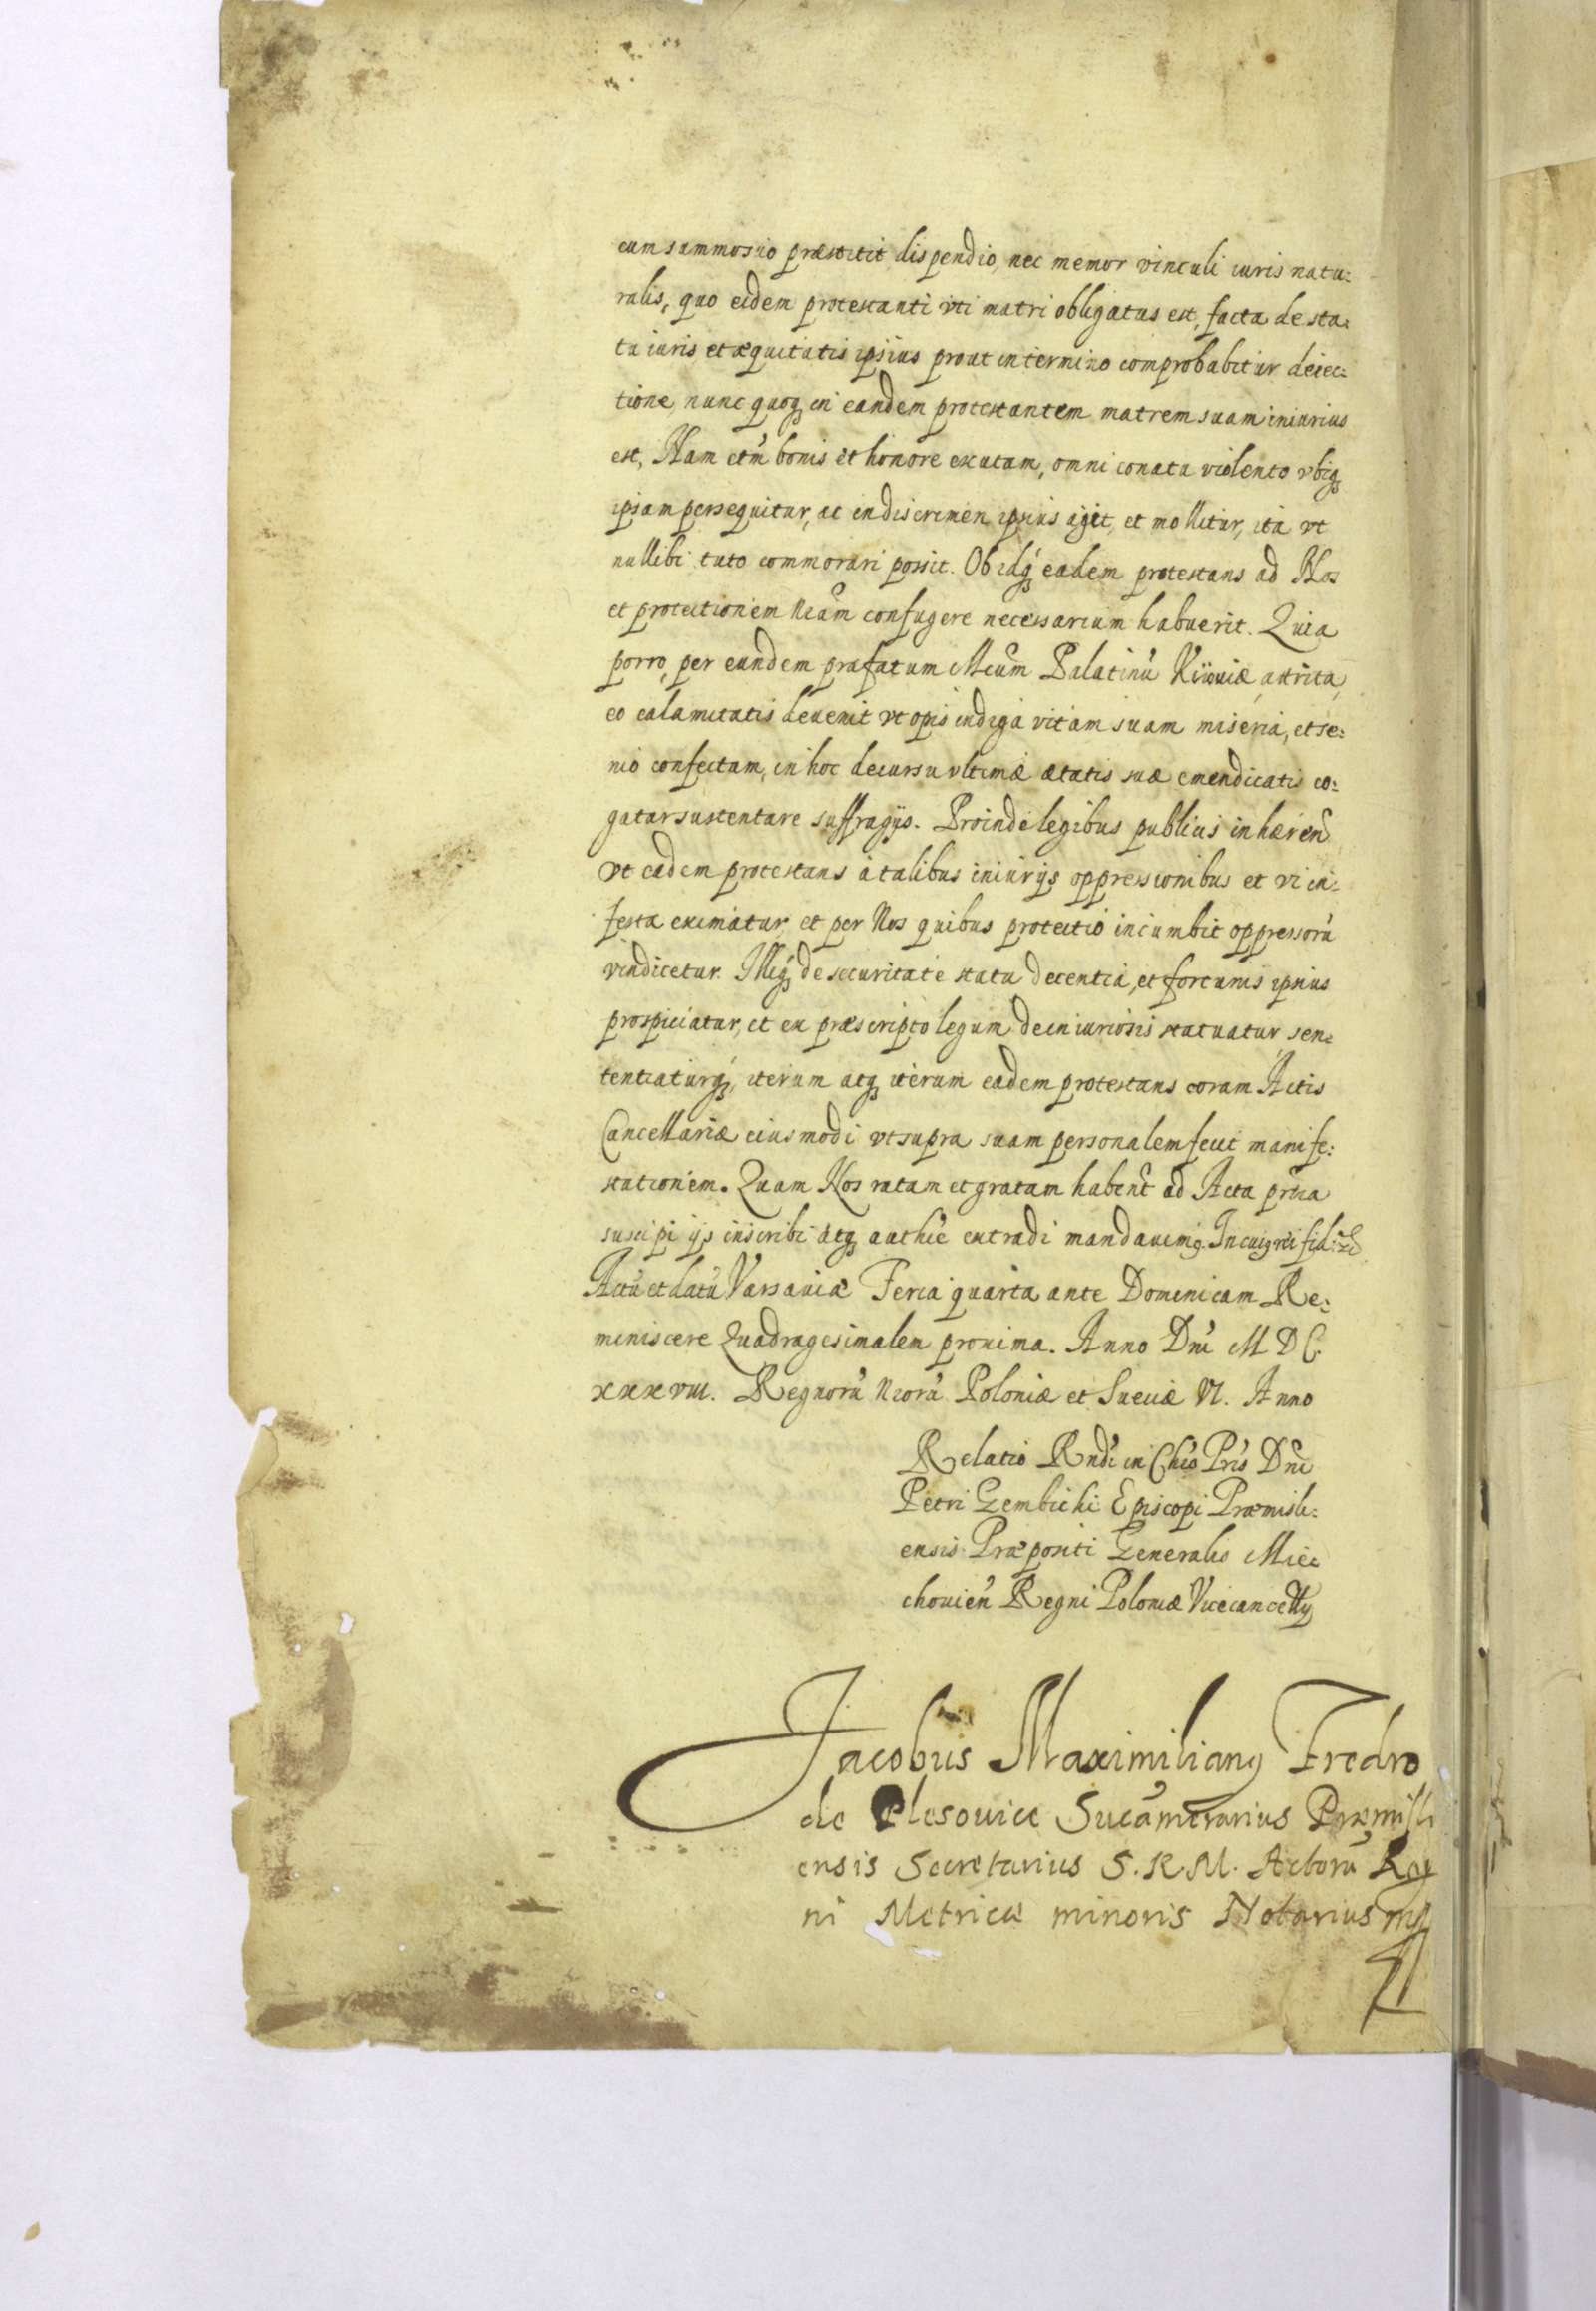 cum summo suo præstitit dispendio, nec memor vinculi iuris natu:
ralis, quo eidem protestanti vti matri obligatus est, facta de sta:
tu iuris et æquitatis ipsius prout in termino comprobabitur deiec:
tione, nunc quoq in eandem protestantem matrem suam iniurius
est, Nam etm̃ bonis et honore exutam, omni conatu violento vbiq
ipsam persequitur, ac in discrimen ipsius agit, et mollitur, ita vt
nullibi tuto commorari possit. Ob idq eadem protestans ad Nos
et protectionem Nr̃am confugere necessarium habuerit. Quia
porro, per eundem præfatum Mcũm Palatinũ Kijouiæ attrita,
eo calamitatis deuenit vt opis indiga vitam suam miseria, et se:
nio confectam, in hoc decursu vltimæ ætatis suæ emendicatis co:
gatur sustentare suffragijs. Proinde legibus publicis inhæreñ
vt eadem protestans à talibus iniurijs oppressionibus et vi in:
festa eximatur, et per Nos quibus protectio incumbit oppressorũ
vindicetur. Illiq de securitate statu decentia, et fortunis ipsius
prospiciatur, et ex præscripto legum de iniuriosis statuatur sen:
tentiaturq, iterum atq iterum eadem protestans coram Actis
Cancellariæ eiusmodi vt supra suam personalem fecit manife:
stationem. Quam Nos ratam et gratam habent̃ ad Acta pñtia
suscipi ijs inscribi atq authẽ extradi mandauimq. In cuiq rei fid:
Actũ et datũ Varsauiæ Feria quarta ante Dominicam Re:
miniscere Quadragesimalem proxima. Anno Dni M D C.
xxxviii. Regnorũ Nr̃orũ Poloniæ et Sueciæ VI. Anno
Relatio Rndi in Chõ Pris Dni
Petri Gembicki Episcopi Præmisli:
ensis Præpositi Generalis Mie:
chouieñ Regni Poloniæ Vicecancellij
Jacobus Maximilianq Fredro
de Plesouice Sucamerarius Præmisli
ensis Secretarius S. R. M. Actorũ Reg
ni Metricæ minoris Notarius mp